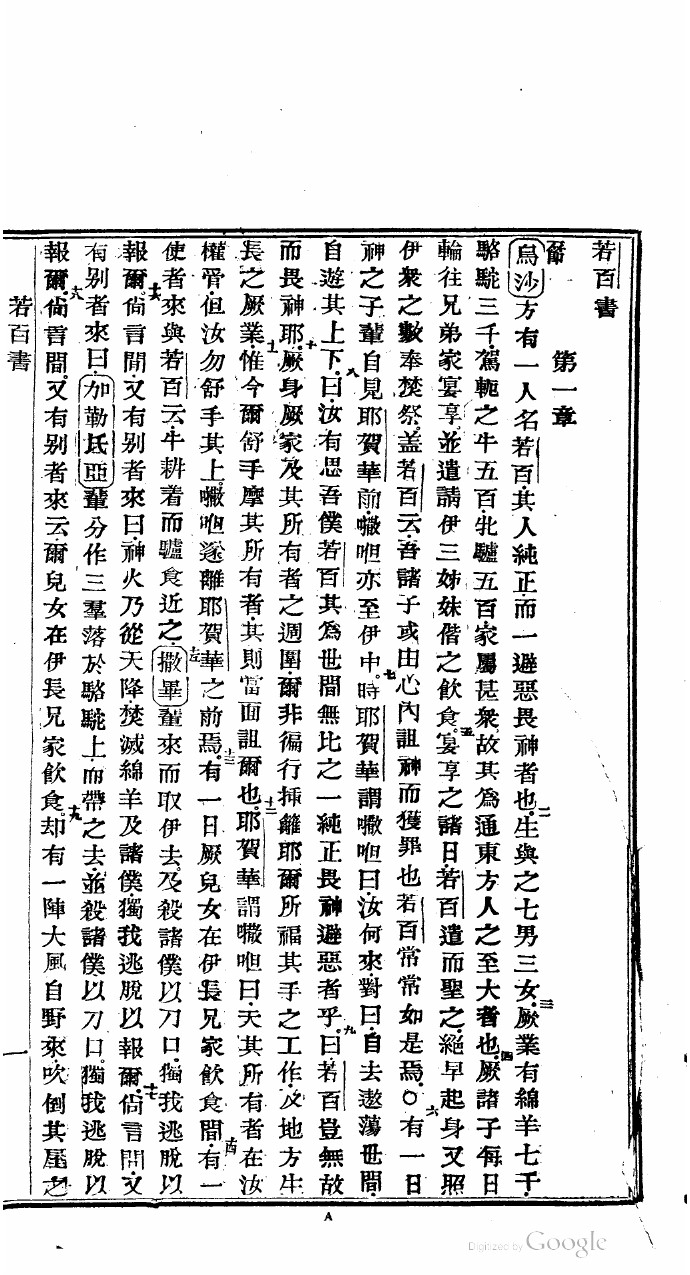 若百書
爾 第一章
烏沙方有一人名若百其人純正而一避惡畏神者也二生與之七男三女三厥業有綿羊七千
駱駝三千駕軛之牛五百牝驢五百家屬甚衆故其爲通東方人之至大者也四厥諸子每日
輪往兄弟家宴享並遣請伊三姊妹偕之飲食五宴享之諸日若百遣而聖之絕早起身又照
伊衆之數奉焚祭蓋若百云吾諸子或由心內詛神而獲罪也若百常常如是焉○六有一日
神之子輩自見耶賀華前𠾐呾亦至伊中七時耶賀華謂𠾐呾曰汝何來對曰自去遨蕩世間
自遊其上下八曰汝有思吾僕若百其爲世間無比之一純正畏神避惡者乎九曰若百豈無故
而畏神耶十厥身厥家及其所有者之週圍爾非徧行插籬耶爾所福其手之工作及地方生
長之厥業十一惟今爾舒手摩其所有者其則當面詛爾也十二耶賀華謂𠾐呾曰天其所有者在汝
權手但汝勿舒手其上𠾐呾遂離耶賀華之前焉十三有一日厥兒女在伊長兄家飲食間十四有一
使者來與若百云牛耕着而驢食近之十五撒畢輩來而取伊去及殺諸僕以刀口獨我逃脫以
報爾十六尙言間又有別者來曰神火乃從天降焚滅綿羊及諸僕獨我逃脫以報爾十七尙言間又
有別者來曰加勒氐亞輩分作三羣落於駱駝上而帶之去並殺諸僕以刀口獨我逃脫以
報爾十八尙言間又有別者來云爾兒女在伊長兄家飲食十九却有一陣大風自野來吹倒其屋之
若百書 一
A
Digitized by Google